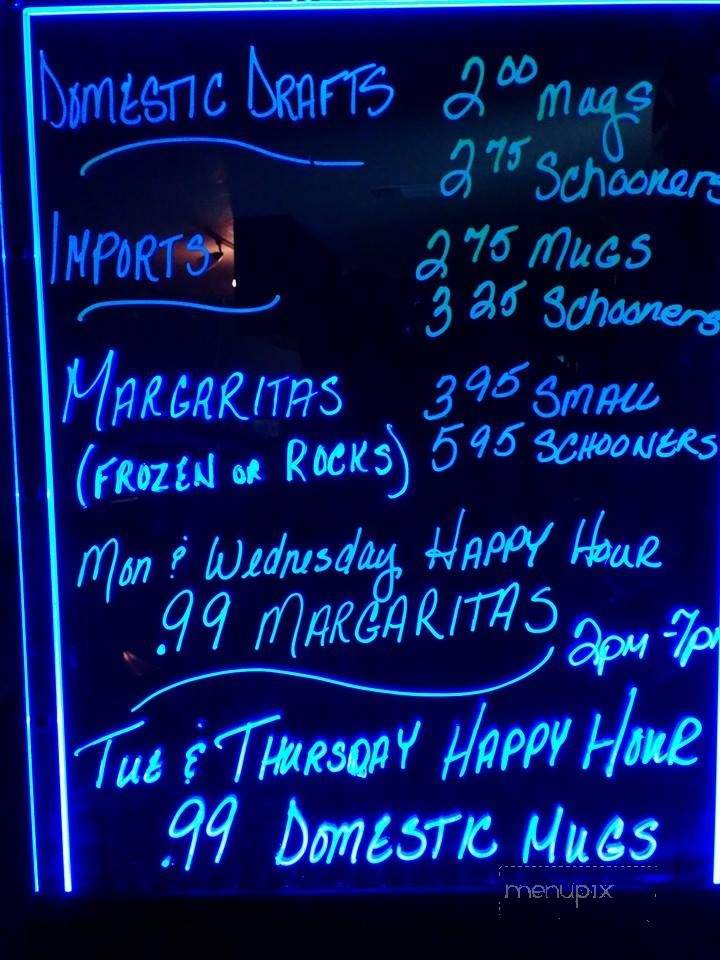 DOMESTIC DRAFTS 2.00 Mugs
2.75 Schooners
IMPORTS 2.75 MUGS
3.25 Schooners
MARGARITAS 3.95 SMALL
(FROZEN OR ROCKS) 5.95 SCHOONERS
Mon & Wednesday HAPPY HOUR
.99 MARGARITAS 2pm-7p
TUE & THURSDAY HAPPY HOUR
.99 DOMESTIC MUGS
menupix